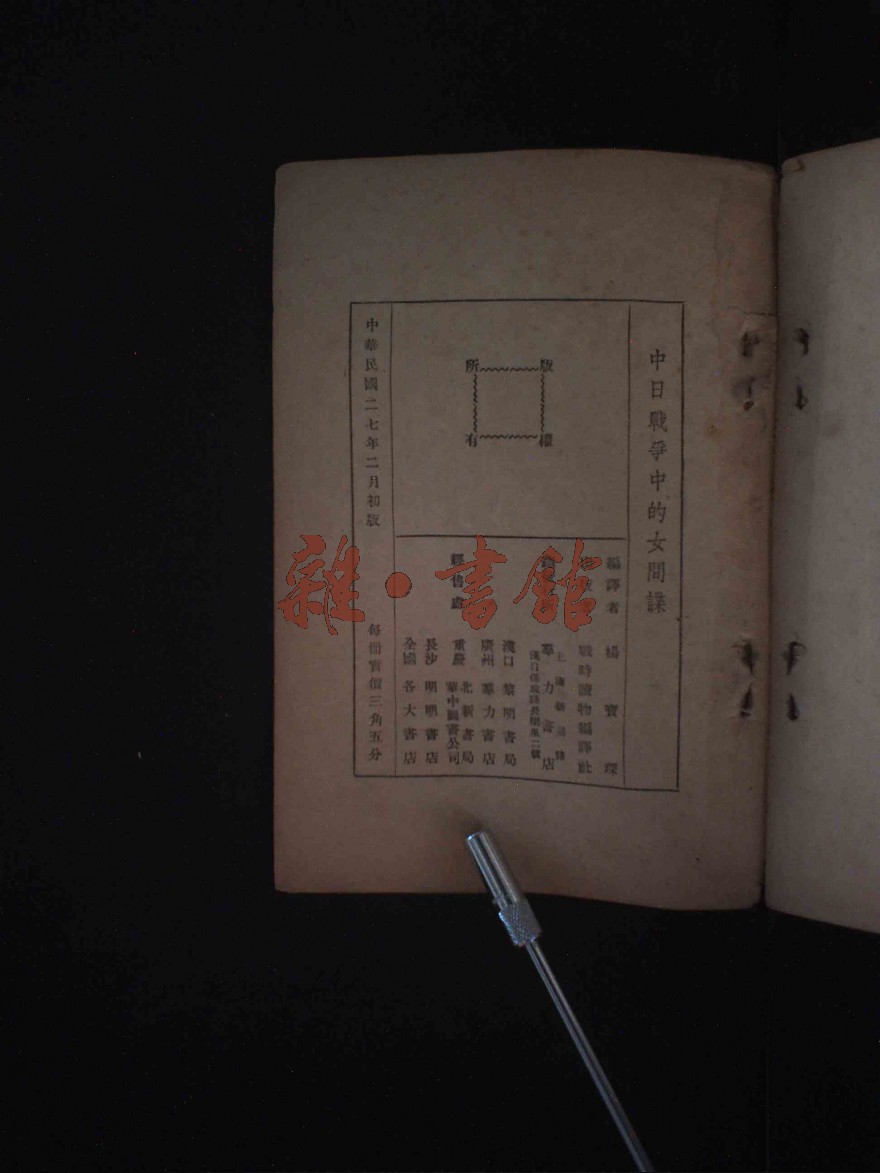 中日戰爭中的女間諜
編譯者 楊寶琛
戰時讀物編譯社
羣力書店
漢口 黎明書局
廣州 羣力書店
重慶 北新書局
華中圖書公司
長沙 明明書店
全國 各大書店
經售處
版權所有
中華民國二七年二月初版 每冊實價三角五分
雜·書館